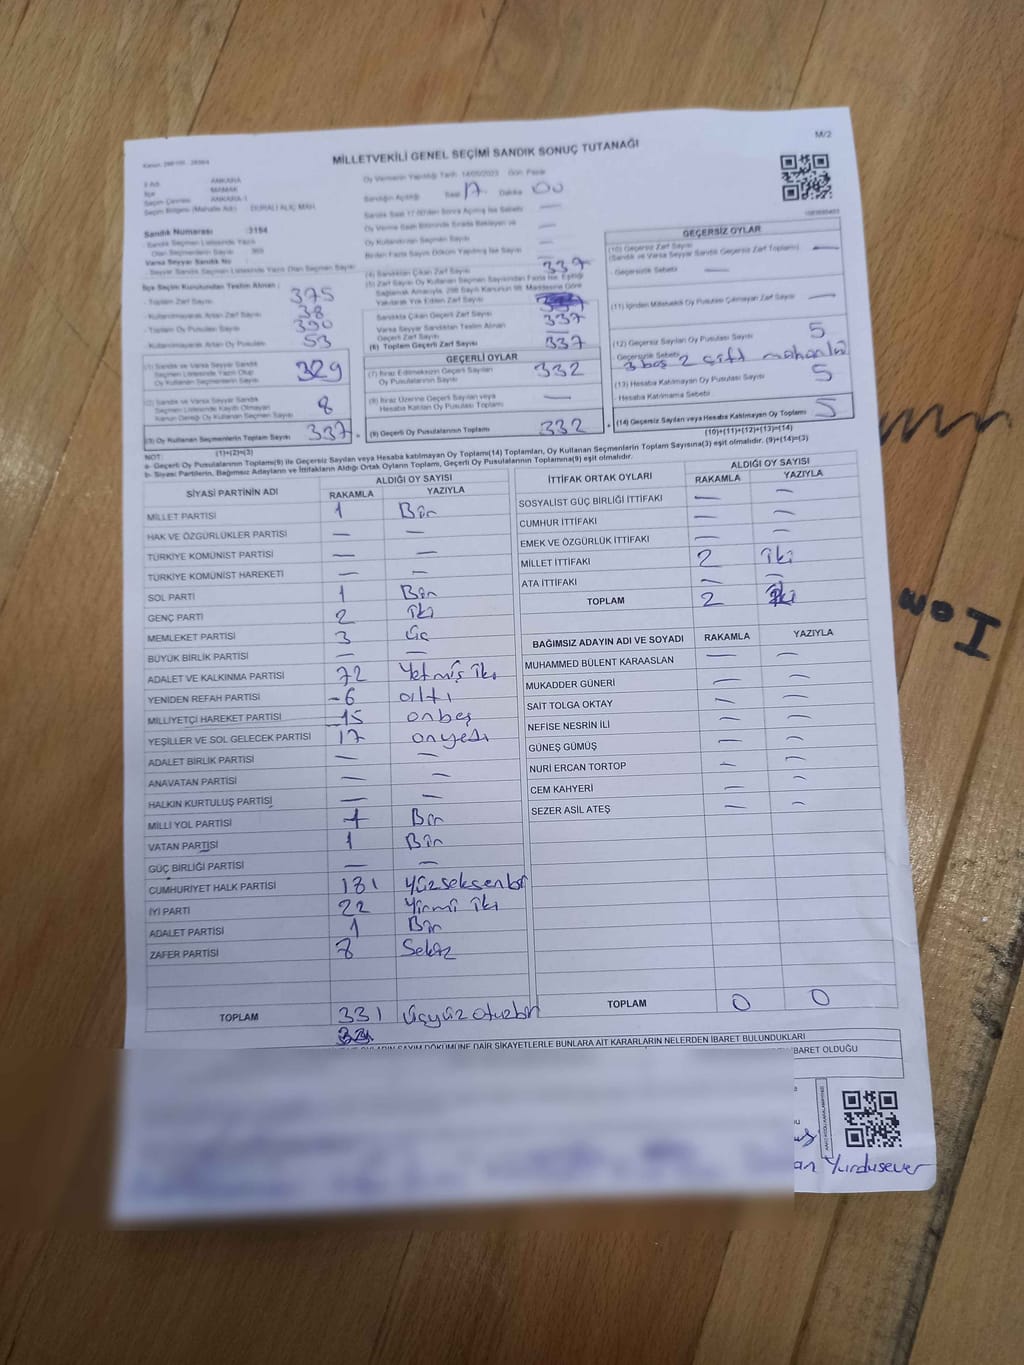 M/2
MİLLETVEKİLİ GENEL SEÇİMİ SANDIK SONUÇ TUTANAĞI
İli Adı : ANKARA
İlçe : MAMAK
Seçim Çevresi : ANKARA-1
Seçim Bölgesi (Mahalle Adı) : DURALİ ALIÇ MAH.
Sandık Numarası :3154
Sandık Seçmen Listesinde Yazılı
Olan Seçmenlerin Sayısı
Varsa Seyyar Sandık No
Seyyar Sandık Seçmen Listesinde Yazılı Olan Seçmen Sayısı
İlçe Seçim Kurulundan Teslim Alınan ;
- Toplam Zarf Sayısı 375
- Kullanılmayarak Artan Zarf Sayısı 38
- Toplam Oy Pusulası Sayısı 390
- Kullanılmayarak Artan Oy Pusulası 53
(1) Sandık ve Varsa Seyyar Sandık
Seçmen Listesinde Yazılı Olup
Oy Kullanan Seçmenlerin Sayısı 329
(2) Sandık ve Varsa Seyyar Sandık
Seçmen Listesinde Kayıtlı Olmayan
Kanun Gereği Oy Kullanan Seçmen Sayısı 8
(3) Oy Kullanan Seçmenlerin Toplam Sayısı 337
(1)+(2)=(3)
Oy Vermenin Yapıldığı Tarih 14/05/2023 Gün Pazar
Sandığın Açıldığı Saat 17 Dakika 00
Sandık Saat 17.00'den Sonra Açılmış İse Sebebi —
Oy Verme Saati Bitiminde Sırada Bekleyen ve
Oy Kullandırılan Seçmen Sayısı —
Birden Fazla Sayım Döküm Yapılmış İse Sayısı —
(4) Sandıktan Çıkan Zarf Sayısı 337
(5) Zarf Sayısı Oy Kullanan Seçmen Sayısından Fazla İse, Eşitliği
Sağlamak Amacıyla, 298 Sayılı Kanunun 98. Maddesine Göre
Yakılarak Yok Edilen Zarf Sayısı
Sandıkta Çıkan Geçerli Zarf Sayısı 337
Varsa Seyyar Sandıktan Teslim Alınan
Geçerli Zarf Sayısı —
(6) Toplam Geçerli Zarf Sayısı 337
GEÇERLİ OYLAR
(7) İtiraz Edilmeksizin Geçerli Sayılan
Oy Pusulalarının Sayısı 332
(8) İtiraz Üzerine Geçerli Sayılan veya
Hesaba Katılan Oy Pusulası Toplamı —
(9) Geçerli Oy Pusulalarının Toplamı 332
GEÇERSİZ OYLAR
(10) Geçersiz Zarf Sayısı —
(Sandık ve Varsa Seyyar Sandık Geçersiz Zarf Toplamı)
- Geçersizlik Sebebi —
(11) İçinden Milletvekili Oy Pusulası Çıkmayan Zarf Sayısı —
(12) Geçersiz Sayılan Oy Pusulası Sayısı 5
Geçersizlik Sebebi 3 boş 2 çift
(13) Hesaba Katılmayan Oy Pusulası Sayısı 5
- Hesaba Katılmama Sebebi
(14) Geçersiz Sayılan veya Hesaba Katılmayan Oy Toplamı 5
(10)+(11)+(12)+(13)=(14)
NOT:
a- Geçerli Oy Pusulalarının Toplamı(9) ile Geçersiz Sayılan veya Hesaba katılmayan Oy Toplamı(14) Toplamları, Oy Kullanan Seçmenlerin Toplam Sayısına(3) eşit olmalıdır. (9)+(14)=(3)
b- Siyasi Partilerin, Bağımsız Adayların ve İttifakların Aldığı Ortak Oyların Toplamı, Geçerli Oy Pusulalarının Toplamına(9) eşit olmalıdır.
SİYASİ PARTİNİN ADI ALDIĞI OY SAYISI
RAKAMLA YAZIYLA
MİLLET PARTİSİ 1 Bir
HAK VE ÖZGÜRLÜKLER PARTİSİ — —
TÜRKİYE KOMÜNİST PARTİSİ — —
TÜRKİYE KOMÜNİST HAREKETİ — —
SOL PARTİ 1 Bir
GENÇ PARTİ 2 iki
MEMLEKET PARTİSİ 3 üç
BÜYÜK BİRLİK PARTİSİ — —
ADALET VE KALKINMA PARTİSİ 72 Yetmiş iki
YENİDEN REFAH PARTİSİ -6 altı
MİLLİYETÇİ HAREKET PARTİSİ 15 onbeş
YEŞİLLER VE SOL GELECEK PARTİSİ 17 onyedi
ADALET BİRLİK PARTİSİ — —
ANAVATAN PARTİSİ — —
HALKIN KURTULUŞ PARTİSİ — —
MİLLİ YOL PARTİSİ 1 Bir
VATAN PARTİSİ 1 Bir
GÜÇ BİRLİĞİ PARTİSİ — —
CUMHURİYET HALK PARTİSİ 181 Yüzseksenbir
İYİ PARTİ 22 Yirmi iki
ADALET PARTİSİ 1 Bir
ZAFER PARTİSİ 8 Sekiz
TOPLAM 331 üçyüz otuzbir
331
İTTİFAK ORTAK OYLARI ALDIĞI OY SAYISI
RAKAMLA YAZIYLA
SOSYALİST GÜÇ BİRLİĞİ İTTİFAKI — —
CUMHUR İTTİFAKI — —
EMEK VE ÖZGÜRLÜK İTTİFAKI — —
MİLLET İTTİFAKI 2 iki
ATA İTTİFAKI — —
TOPLAM 2 iki
BAĞIMSIZ ADAYIN ADI VE SOYADI RAKAMLA YAZIYLA
MUHAMMED BÜLENT KARAASLAN — —
MUKADDER GÜNERİ — —
SAİT TOLGA OKTAY — —
NEFİSE NESRİN İLİ — —
GÜNEŞ GÜMÜŞ — —
NURİ ERCAN TORTOP — —
CEM KAHYERİ — —
SEZER ASİL ATEŞ — —
TOPLAM 0 0
OYLARIN SAYIM DÖKÜMÜNE DAİR ŞİKAYETLERLE BUNLARA AİT KARARLARIN NELERDEN İBARET BULUNDUKLARI
İBARET OLDUĞU
an Yurdusever
Iom